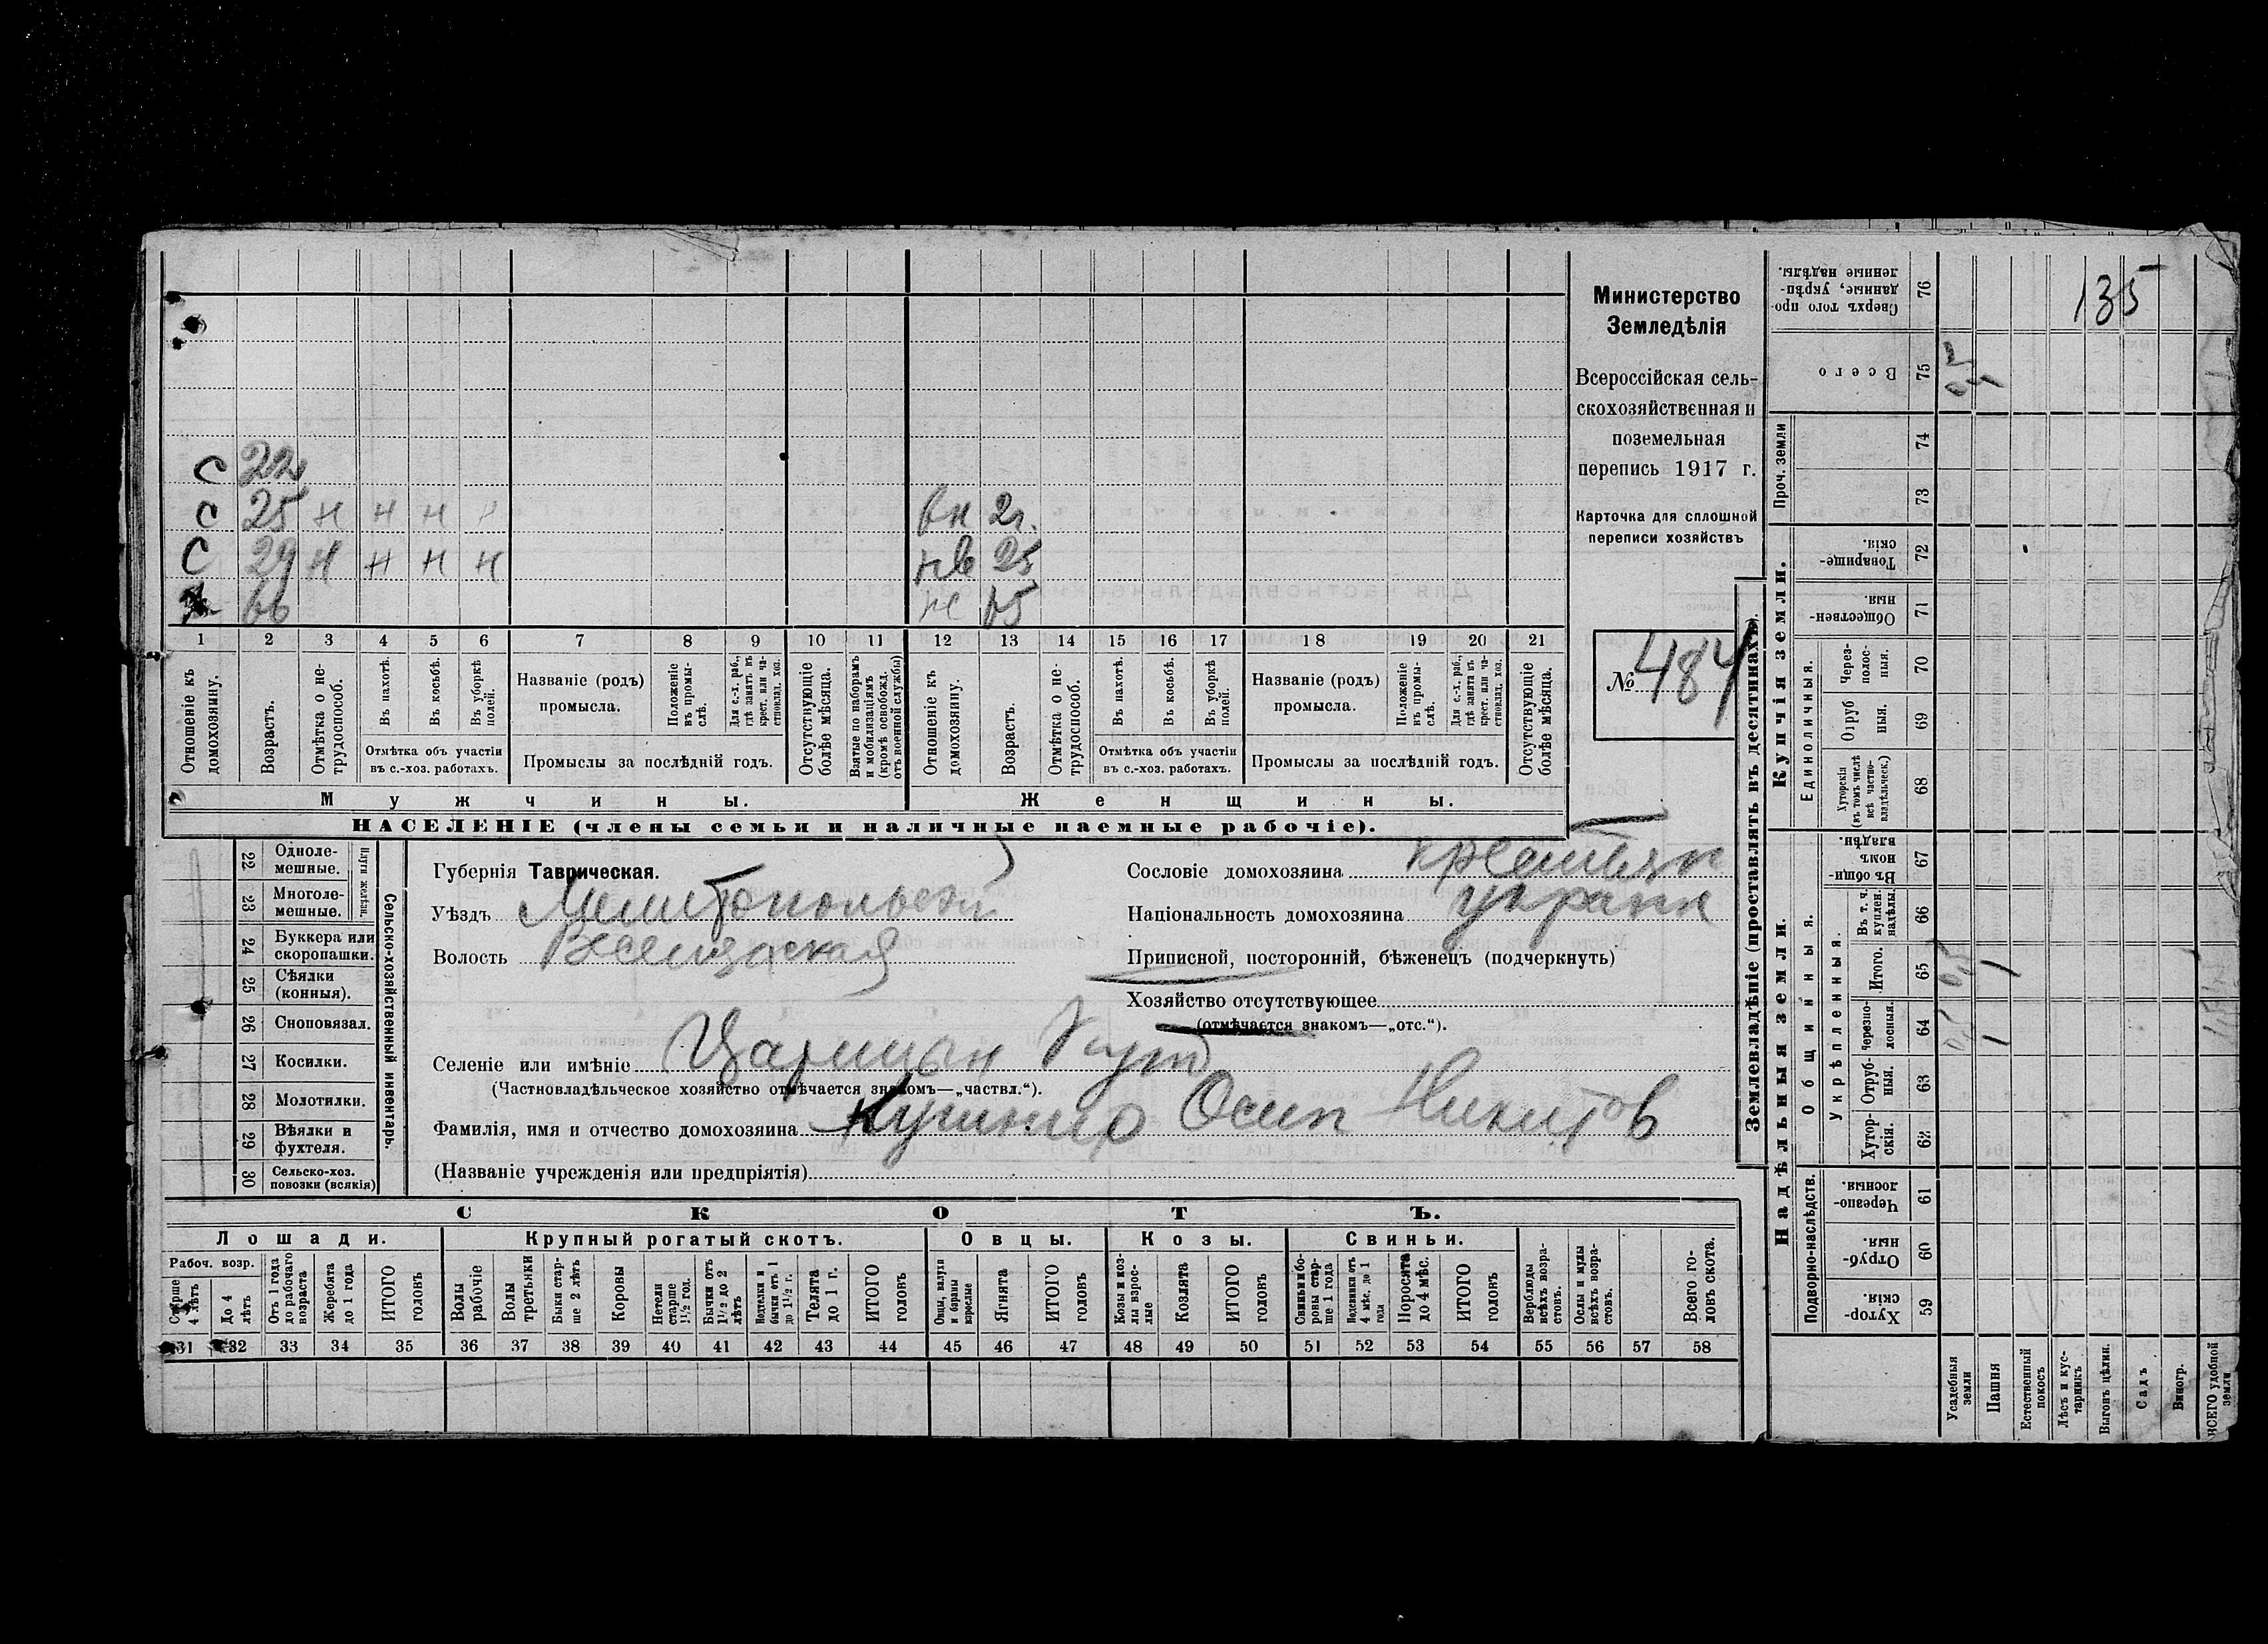 135
Министерство
Земледѣлія
Всероссійская сель-
скохозяйственная и
поземельная
перепись 1917 г.
Карточка для сплошной
переписи хозяйствъ
№ 484
С 22
С 25 н н н н вн 2г.
С 29 н н н н нв 25
66 ж 65
1 2 3 4 5 6 7 8 9 10 11 12 13 14 15 16 17 18 19 20 21
Отношеніе къ домохозяину.
Возрастъ.
Отмѣтка о не-трудоспособ.
Въ пахотѣ.
Въ косьбѣ.
Въ уборкѣ полей.
Отмѣтка объ участіи
въ с.-хоз. работахъ.
Названіе (родъ)
промысла.
Положеніе въ промы-слѣ.
Для с.-х. раб., гдѣ занятъ въ крест. или ча-стновлад. хоз.
Промыслы за послѣдній годъ.
Отсутствующіе болѣе мѣсяца.
Взятые по наборамъ и мобилизаціямъ (кромѣ освобожд. отъ военной службы)
Отношеніе къ домохозяину.
Возрастъ.
Отмѣтка о не-трудоспособ.
Въ пахотѣ.
Въ косьбѣ.
Въ уборкѣ полей.
Отмѣтка объ участіи
въ с.-хоз. работахъ.
Названіе (родъ)
промысла.
Положеніе въ промы-слѣ.
Для с.-х. раб., гдѣ занята въ крест. или ча-стновлад. хоз.
Промыслы за послѣдній годъ.
Отсутствующіе болѣе мѣсяца.
Мужчины.
Женщины.
НАСЕЛЕНІЕ (члены семьи и наличные наемные рабочіе).
22 Одноле-мешные.
23 Многоле-мешные.
Плуги желѣзн.
24 Буккера или скоропашки.
25 Сѣялки (конныя).
26 Сноповязал.
27 Косилки.
28 Молотилки.
29 Вѣялки и фухтеля.
30 Сельско-хоз. повозки (всякія)
Сельско-хозяйственный инвентарь.
Губернія Таврическая.
Уѣздъ Мелитопольский
Волость
Сословіе домохозяина крестьян
Національность домохозяина украин
Приписной, посторонній, бѣженецъ (подчеркнуть)
Хозяйство отсутствующее
(отмѣчается знакомъ—„отс.“).
Селеніе или имѣніе Царицын Кут
(Частновладѣльческое хозяйство отмѣчается знакомъ—„частвл.“).
Фамилія, имя и отчество домохозяина Кушнир Осип Никитов
(Названіе учрежденія или предпріятія)
СКОТЪ.
Лошади. Крупный рогатый скотъ. Овцы. Козы. Свиньи.
Рабоч. возр.
Старше 4 лѣтъ
До 4 лѣтъ
Отъ 1 года до рабочаго возраста
Жеребята до 1 года
ИТОГО головъ
Волы рабочіе
Волы третьяки
Быки стар-ше 2 лѣтъ
Коровы
Нетели старше 1½ год.
Бычки отъ 1½ до 2 лѣтъ
Подтелки и бычки отъ 1 до 1½ г.
Телята до 1 г.
ИТОГО головъ
Овцы, валухи и бараны взрослые
Ягнята
ИТОГО головъ
Козы и коз-лы взрос-лые
Козлята
ИТОГО головъ
Свиньи бо-ровы стар-ше 1 года
Подсвинки отъ 4 мѣс. до 1 года
Поросята до 4 мѣс.
ИТОГО головъ
Верблюды всѣхъ возра-стовъ.
Ослы и мулы всѣхъ возра-стовъ.
Всего го-ловъ скота.
31 32 33 34 35 36 37 38 39 40 41 42 43 44 45 46 47 48 49 50 51 52 53 54 55 56 57 58
Землевладѣніе (проставлять въ десятинахъ).
Купчія земли.
Надѣльныя земли.
Сверхъ того про-данные, укрѣп-ленные надѣлы. 76
Всего 75
Проч. земли
74
73
Товарище-скія. 72
Обществен-ныя. 71
Единоличныя.
Через-полос-ныя. 70
Отруб-ныя. 69
Хуторскія (въ томъ числѣ всѣ частно-владѣльческ.) 68
Общинныя.
Въ общи-номъ владѣн. 67
Укрѣпленныя.
Въ т. ч. куплен. надѣлы. 66
Итого. 65
Черезпо-лосныя. 64
Отруб-ныя. 63
Хутор-скія. 62
Подворно-наслѣдств.
Черезпо-лосныя. 61
Отруб-ныя. 60
Хутор-скія. 59
Усадебныя земли
Пашня
Естественный покосъ
Лѣсъ и кус-тарникъ
Выгонъ цѣлин.
Садъ
Виногр.
ВСЕГО удобной земли